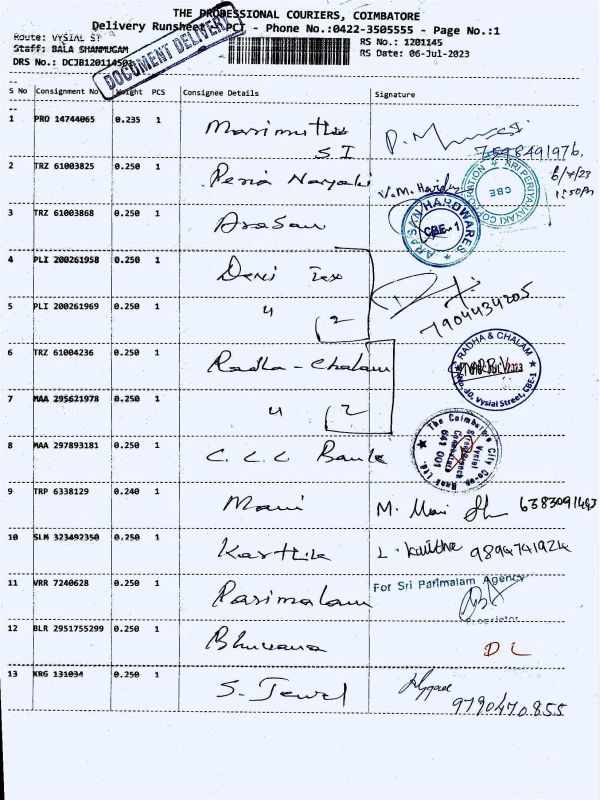 THE PROFESSIONAL COURIERS, COIMBATORE
Delivery Runsheet - PCT - Phone No.:0422-3505555 - Page No.:1
Route: VYSIAL ST
Staff: BALA SHANMUGAM
DRS No.: DCJB1201145
RS No.: 1201145
RS Date: 06-Jul-2023
DOCUMENT DELIVERY
S No Consignment No Weight PCS Consignee Details Signature
1 PRO 14744065 0.235 1 Marimuthu
S.I
7598491976
2 TRZ 61003825 0.250 1 Peria Nayaki V.M. Hardy
CORPORATION SRI PERIYANAYAKI
CBE
6/7/23
1:50pm
3 TRZ 61003868 0.250 1 Arasan
ARASAN HARDWARES
CBE-1
4 PLI 200261958 0.250 1 Devi Tex
5 PLI 200261969 0.250 1 " 2
7904434205
6 TRZ 61004236 0.250 1 Radha - Chalam
RADHA & CHALAM
No. 30, Vysial Street, CBE-1
7 MAA 295621978 0.250 1 " 2
8 MAA 297893181 0.250 1 C.C.C Bank
The Coimbatore City Co-op Bank Ltd.
Vysial
641 001
9 TRP 6338129 0.240 1 Mani M. Mani 6383091493
10 SLM 323492350 0.250 1 Karthik L. Kavitha 9894741924
11 VRR 7240628 0.250 1 Parimalam
For Sri Parimalam Agency
Proprietor
12 BLR 2951755299 0.250 1 Bhuvana DL
13 KRG 131034 0.250 1 S. Jewel
9790470855